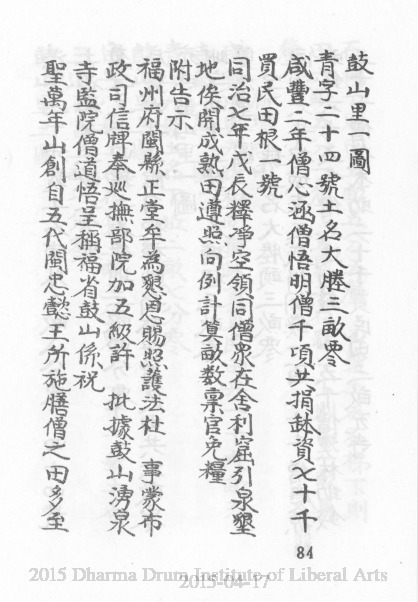 鼓山里一圖
青字二十四號土名大塍三畝零
咸豐二年僧心涵僧悟明僧千頃共捐缽資七十千
買民田根一號
同治七年戊辰釋淨空領同僧眾在舍利窟引泉墾
地俟開成熟田遵照向例計算畝数稟官免糧
附告示
福州府閩縣正堂牟為懇恩賜照護法杜 事蒙布
政司信牌奉巡撫部院加五級許 批據鼓山湧泉
寺監院僧道悟呈稱福省鼓山係祝
聖萬年山創自五代閩忠懿王所施膳僧之田多至
84
2015 Dharma Drum Institute of Liberal Arts
2015-04-17